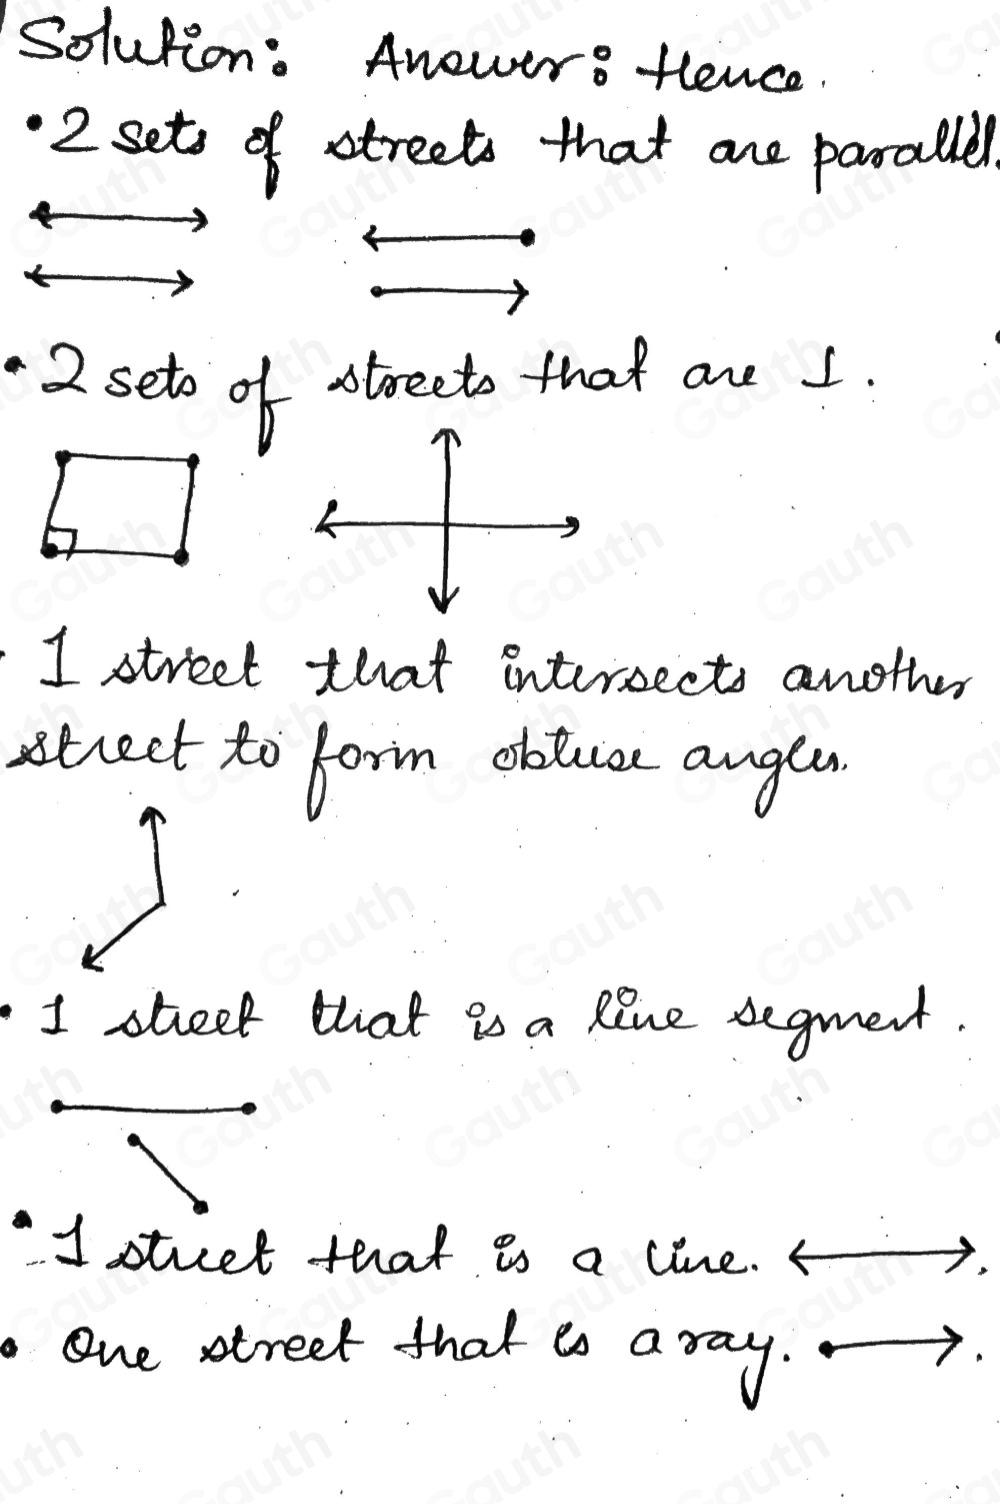 Solution: Answer: Hence.
• 2 sets of streets that are parallel.
• 2 sets of streets that are ⊥.
1 street that intersects another
street to form obtuse angles.
• 1 street that is a line segment.
• 1 street that is a line.
• One street that is a ray.